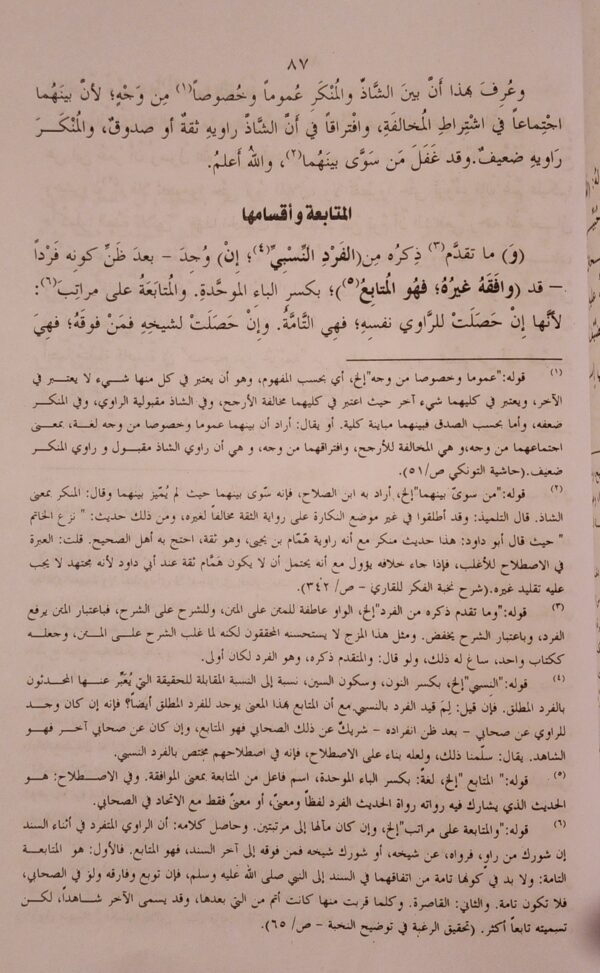 ٨٧
وعُرِفَ بهذا أنَّ بينَ الشَّاذِّ والمُنْكَرِ عُموماً وخُصوصاً(١) مِن وَجْهٍ؛ لأنَّ بينَهُما
اجْتِماعاً في اشْتِراطِ المُخالفَةِ، وافْتراقاً في أنَّ الشَّاذَّ راويهِ ثقةٌ أو صدوقٌ، والمُنْكَرَ
رَاويهِ ضعيفٌ.وقد غَفَلَ مَن سَوَّى بينَهُما(٢)، واللهُ أَعلمُ.
المتابعة وأقسامها
(وَ) ما تقدَّم(٣) ذِكرُه مِن(الفَرْدِ النِّسْبِيِّ(٤)؛ إنْ) وُجِدَ – بعدَ ظَنِّ كونِه فَرْداً
– قد (وافَقَهُ غيرُهُ؛ فهُو المُتابِعُ(٥))؛ بكسرِ الباءِ الموحَّدةِ. والمُتابَعَةُ على مراتبَ(٦):
لأنَّها إنْ حَصَلَتْ للرَّاوي نفسِهِ؛ فهي التَّامَّةُ. وإنْ حَصَلَتْ لشيخِهِ فمَنْ فوقَهُ؛ فهِيَ
(١) قوله:"عموما وخصوصا من وجه"إلخ، أي بحسب المفهوم، وهو أن يعتبر في كل منها شيء لا يعتبر في
الآخر، ويعتبر في كليهما شيء آخر حيث اعتبر في كليهما مخالفة الأرجح، وفي الشاذ مقبولية الراوي، وفي المنكر
ضعفه، وأما بحسب الصدق فبينهما مباينة كلية. أو يقال: أراد أن بينهما عموما وخصوصا من وجه لغة، بمعنى
اجتماعهما من وجه،و هي المخالفة للأرجح، وافتراقهما من وجه، و هي أن راوي الشاذ مقبول و راوي المنكر
ضعيف.(حاشية التونكي ص/٥١).
(٢) قوله:"من سوىّ بينهما"إلخ، أراد به ابن الصلاح، فإنه سّوى بينهما حيث لم يُمّيز بينهما وقال: المنكر بمعنى
الشاذ. قال التلميذ: وقد أطلقوا في غير موضع النكارة على رواية الثقة مخالفاً لغيره، ومن ذلك حديث: " نزع الخاتم
" حيث قال أبو داود: هذا حديث منكر مع أنه رواية همّام بن يحيى، وهو ثقة، احتج به أهل الصحيح. قلت: العبرة
في الاصطلاح للأغلب، فإذا جاء خلافه يؤول مع أنه يحتمل أن لا يكون همَّام ثقة عند أبي داود لأنه مجتهد لا يجب
عليه تقليد غيره.(شرح نخبة الفكر للقاري – ص/ ٣٤٢).
(٣) قوله:"وما تقدم ذكره من الفرد"إلخ، الواو عاطفة للمتن على المتن، وللشرح على الشرح، فباعتبار المتن يرفع
الفرد، وباعتبار الشرح يخفض. ومثل هذا المزج لا يستحسنه المحققون لكنه لما غلب الشرح علـى المـتن، وجعلـه
ككتاب واحد، ساغ له ذلك، ولو قال: والمتقدم ذكره، وهو الفرد لكان أولى.
(٤) قوله:"النسبي"إلخ، بكسر النون، وسكون السين، نسبة إلى النسبة المقابلة للحقيقة التي يُعَبَّر عنـها المحـدثون
بالفرد المطلق. فإن قيل: لِمَ قيد الفرد بالنسبي.مع أن المتابع بهذا المعنى يوجد للفرد المطلق أيضاً؟ فإنه إن كان وجد
للراوي عن صحابي – بعد ظن انفراده – شريكٌ عن ذلك الصحابي فهو المتابع، وإن كان عن صحابي آخـر فهـو
الشاهد. يقال: سلّمنا ذلك، ولعله بناء على الاصطلاح، فإنه في اصطلاحهم مختص بالفرد النسبي.
(٥) قوله:" المتابع "إلخ، لغةً: بكسر الباء الموحدة، اسم فاعل من المتابعة بمعنى الموافقة. وفي الاصـطلاح: هـو
الحديث الذي يشارك فيه رواته رواة الحديث الفرد لفظاً ومعنىً، أو معنىً فقط مع الاتحاد في الصحابي.
(٦) قوله:"والمتابعة على مراتب"إلخ، وإن كان مآلها إلى مرتبتين. وحاصل كلامه: أن الراوي المتفرد في أثناء السند
إن شورك من راوٍ، فرواه، عن شيخه، أو شورك شيخه فمن فوقه إلى آخر السند، فهو المتابع. فالأول: هو المتابعـة
التامة: ولا بد في كونها تامة من اتفاقهما في السند إلى النبي صلى الله عليه وسلم، فإن توبع وفارقه ولو في الصحابي،
فلا تكون تامة. والثاني: القاصرة. وكلما قربت منها كانت أتم من التي بعدها، وقد يسمى الآخر شـاهداً، لكـن
تسميته تابعاً أكثر. (تحقيق الرغبة في توضيح النخبة – ص/ ٦٥).